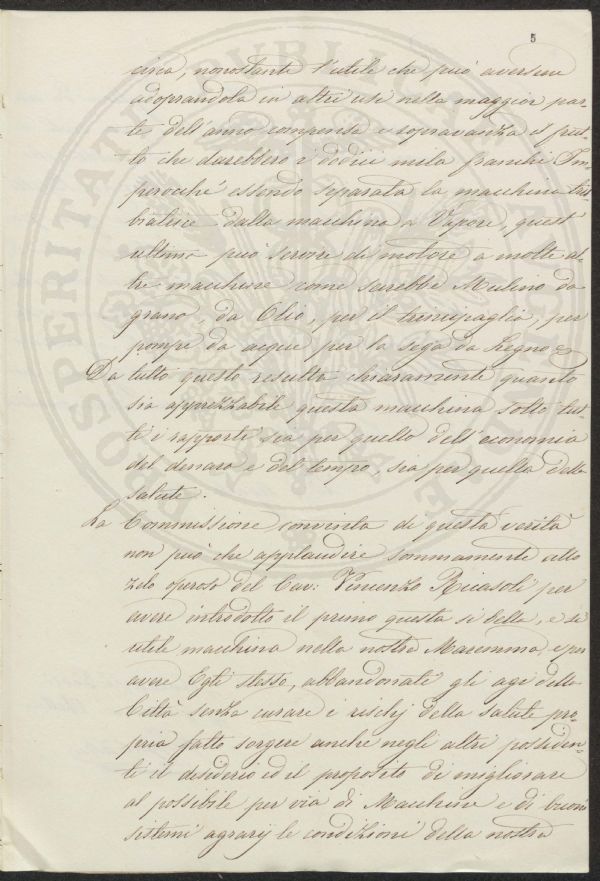 5
circa, nonostante l'utile che può aversene
adoprandola in altri usi nella maggior par-
te dell'anno compensa e sopravanza il frut-
to che darebbero i dodici mila franchi Im-
perocchè essendo separata la macchina treb-
biatrice dalla macchina a Vapore, quest'
ultima può servire di motore a molte al-
tre macchine come sarebbe Mulino da
grano, da Olio, per il trinciapaglia, per
pompe da acqua per la sega da Legno &
Da tutto questo resulta chiaramente quanto
sia apprezzabile questa macchina sotto tut-
ti i rapporti sia per quello dell'economia
del denaro e del tempo, sia per quella della
salute.
La Commissione convinta di questa verità
non può che applaudire sommamente allo
zelo operoso del Cav: Vincenzo Ricasoli per
avere introdotto il primo questa sì bella, e sì
utile macchina nella nostra Maremma, e per
avere Egli stesso, abbandonati gli agi della
Città senza curare i rischj della salute pro-
pria fatto sorgere anche negli altri possiden-
ti il desiderio ed il proposito di migliorare
al possibile per via di Macchine e di buoni
sistemi agrarij le condizioni della nostra
PROSPERITATI PVBLICAE AVGENDAE